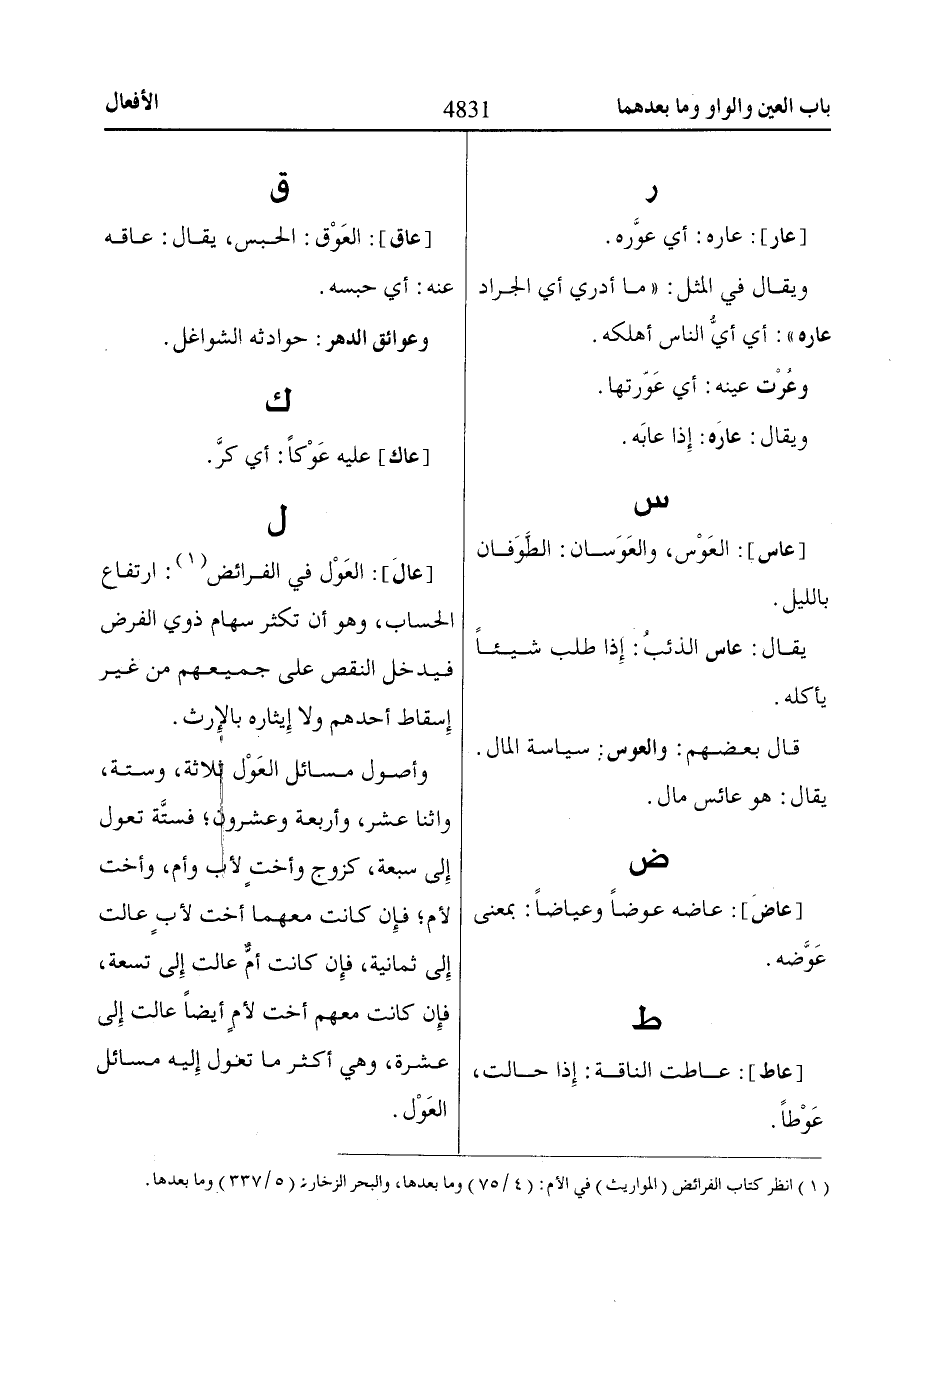 باب العين والواو وما بعدهما
4831
الأفعال
ر
[عار]: عاره: أي عوَّره.
ويقال في المثل: «ما أدري أي الجراد
عاره»: أي أيُّ الناس أهلكه.
وعُرْت عينه: أي عَوّرتها.
ويقال: عارَه: إذا عابَه.
س
[عاس]: العَوْس، والعَوَسان: الطَّوَفان
بالليل.
يقال: عاس الذئبُ: إذا طلب شيئاً
يأكله.
قال بعضهم: والعوس: سياسة المال.
يقال: هو عائس مال.
ض
[عاضَ]: عاضه عوضاً وعياضاً: بمعنى
عَوَّضه.
ط
[عاط]: عاطت الناقة: إذا حالت،
عَوْطاً.
ق
[عاق]: العَوْق: الحبس، يقال: عاقه
عنه: أي حبسه.
وعوائق الدهر: حوادثه الشواغل.
ك
[عاك] عليه عَوْكاً: أي كرَّ.
ل
[عالَ]: العَوْل في الفرائض(١): ارتفاع
الحساب، وهو أن تكثر سهام ذوي الفرض
فيدخل النقص على جميعهم من غير
إسقاط أحدهم ولا إيثاره بالإرث.
وأصول مسائل العَوْل ثلاثة، وستة،
واثنا عشر، وأربعة وعشرون؛ فستَّة تعول
إلى سبعة، كزوج وأخت لأب وأم، وأخت
لأم؛ فإن كانت معهما أخت لأبٍ عالت
إلى ثمانية، فإن كانت أمٌّ عالت إلى تسعة،
فإن كانت معهم أخت لأمٍ أيضاً عالت إلى
عشرة، وهي أكثر ما تعول إليه مسائل
العَوْل.
(١) انظر كتاب الفرائض (المواريث) في الأم: (٤/٧٥) وما بعدها، والبحر الزخار: (٥/٣٣٧) وما بعدها.